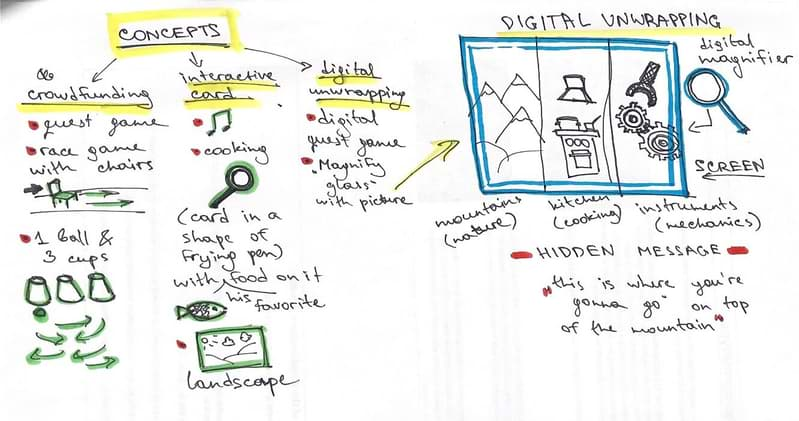 CONCEPTS
&
crowdfunding
• quest game
• race game
with chairs
• 1 ball &
3 cups
interactive
card
• cooking
(card in a
shape of
frying pen)
with food on it
his favorite
landscape
digital
unwrapping
• digital
quest game
• "Magnify
glass"
with picture
DIGITAL UNWRAPPING
digital
magnifier
SCREEN
mountains
(nature)
kitchen
(cooking)
instruments
(mechanics)
HIDDEN MESSAGE
"this is where you're
gonna go" on top
of the mountain"